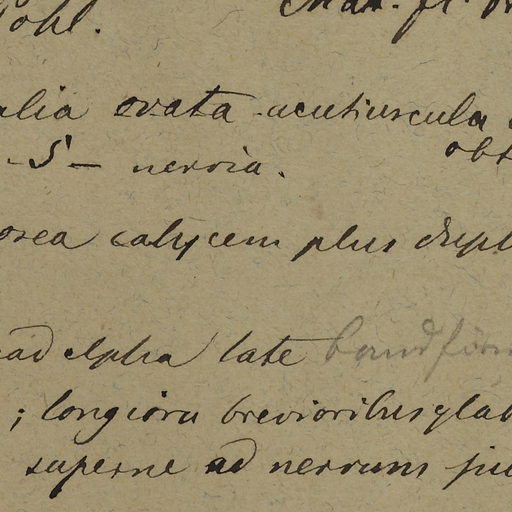 Pohl. Mart. fl.
alia ovata acutiuscula
-5- nervia. obt
osea calycem plus dupl
adelpha late bandförm
; longiora brevioribus glab
superne ad nervum